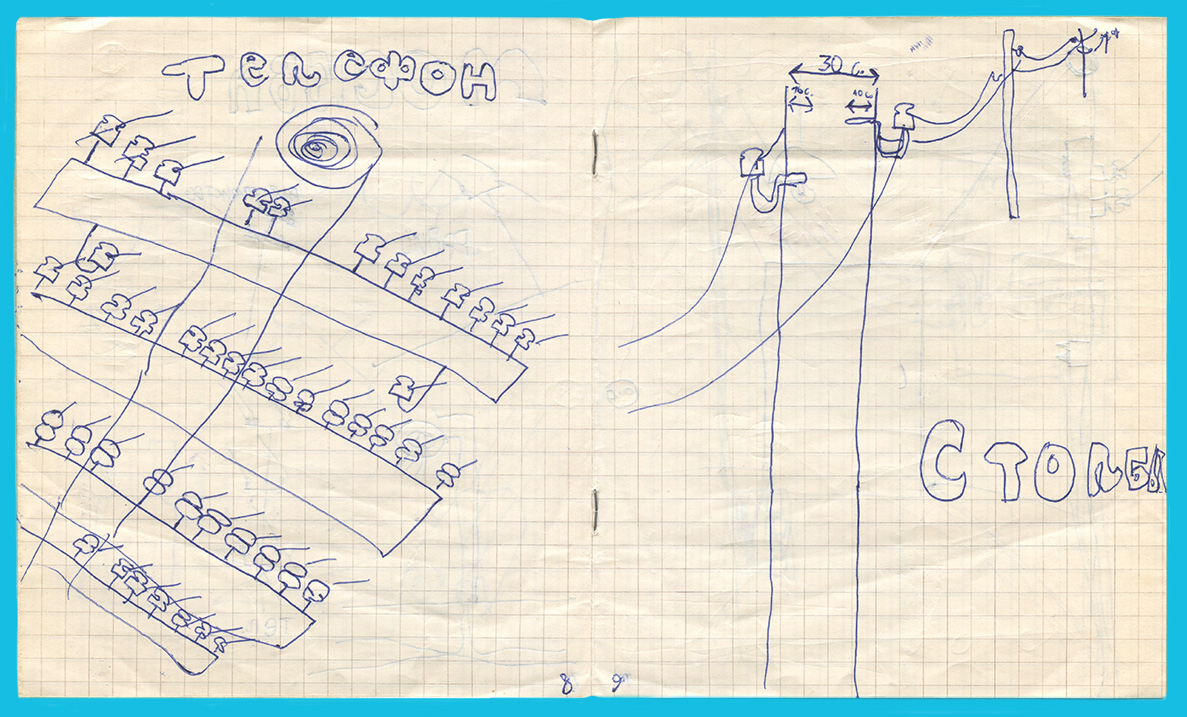 Телефон
30 с.
10 с. 10 с
СТОЛБЫ
8 9